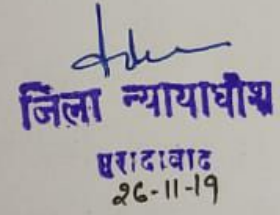 जिला न्यायाधीश
मुरादाबाद
26-11-19